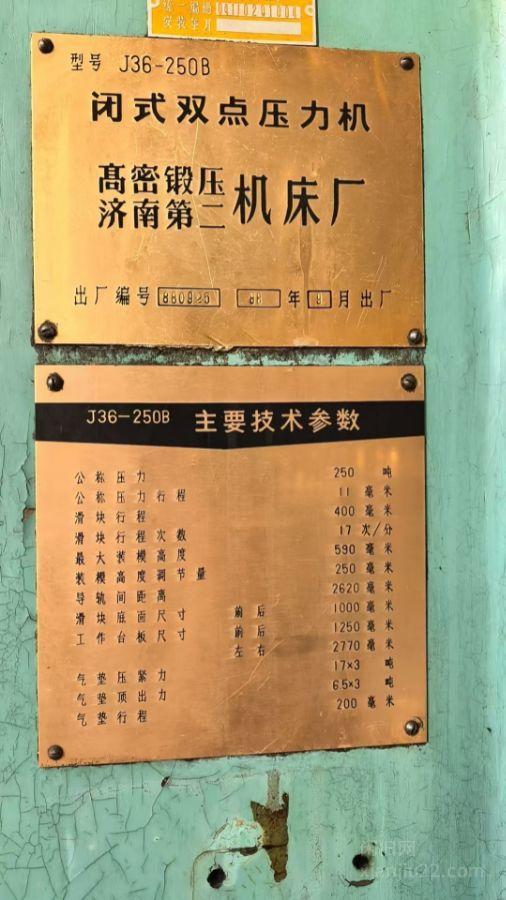 统一编号 0411020100
安装车间
型号 J36-250B
闭式双点压力机
高密锻压
济南第二 机床厂
出厂编号 880925 88 年 9 月出厂
J36-250B 主要技术参数
公称压力 250 吨
公称压力行程 11 毫米
滑块行程 400 毫米
滑块行程次数 17 次/分
最大装模高度 590 毫米
装模高度调节量 250 毫米
导轨间距离 2620 毫米
滑块底面尺寸 前后 1000 毫米
工作台板尺寸 前后 1250 毫米
左右 2770 毫米
气垫压紧力 17×3 吨
气垫顶出力 6.5×3 吨
气垫行程 200 毫米
xianjiu22.com